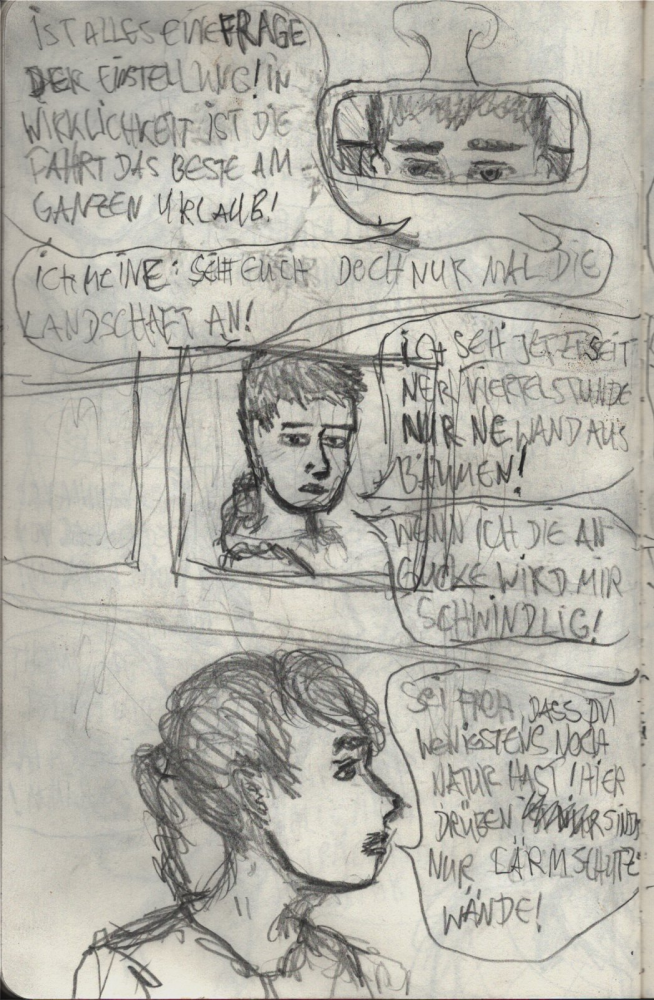 IST ALLES EINE FRAGE
DER EINSTELLUNG! IN
WIRKLICHKEIT IST DIE
FAHRT DAS BESTE AM
GANZEN URLAUB!
ICH MEINE: SEHT EUCH DOCH NUR MAL DIE
LANDSCHAFT AN!
ICH SEH JETZT SEIT
NER VIERTELSTUNDE
NUR NE WAND AUS
BÄUMEN!
WENN ICH DIE AN
GUCKE WIRD MIR
SCHWINDLIG!
SEI FROH, DASS DU
WENIGSTENS NOCH
NATUR HAST! HIER
DRÜBEN SIND
NUR LÄRMSCHUTZ
WÄNDE!